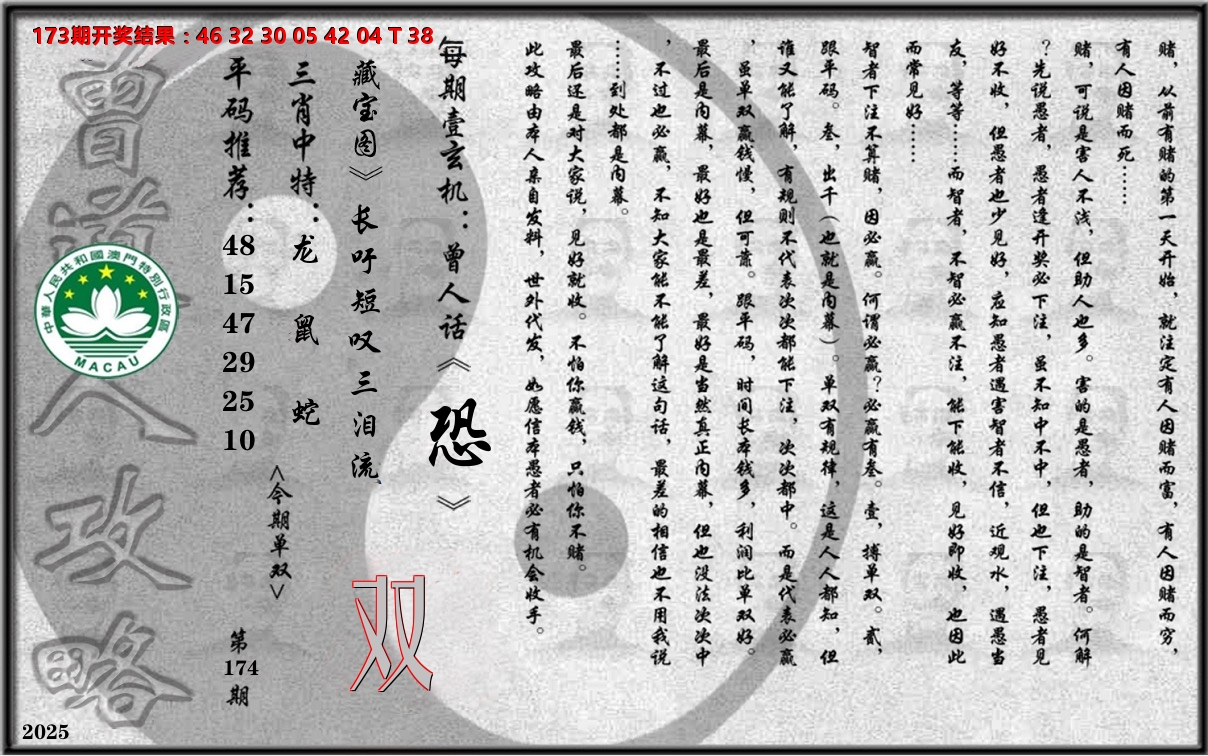 173期开奖结果：46 32 30 05 42 04 T 38
赌，从前有赌的第一天开始，就注定有人因赌而富，有人因赌而穷，
有人因赌而死……
赌，可说是害人不浅，但助人也多。害的是愚者，助的是智者。何解
？先说愚者，愚者逢开奖必下注，虽不知中不中，但也下注，愚者见
好不收，但愚者也少见好，应知愚者遇害智者不信，近观水，遇愚当
友，等等……而智者，不智必赢不注，能下能收，见好即收，也因此
而常见好……
智者下注不算赌，因必赢。何谓必赢？必赢有叁。壹，搏单双。贰，
跟平码。叁，出千（也就是内幕）。单双有规律，这是人人都知，但
谁又能了解，有规则不代表次次都能下注，次次都中。而是代表必赢
，虽单双赢钱慢，但可靠。跟平码，时间长本钱多，利润比单双好。
最后是内幕，最好也是最差，最好是当然真正内幕，但也没法次次中
，不过也必赢，不知大家能不能了解这句话，最差的相信也不用我说
……到处都是内幕。
最后还是对大家说，见好就收。不怕你赢钱，只怕你不赌。
此攻略由本人亲自发料，世外代发，如愿信本愚者必有机会收手。
每期壹玄机：曾人话《恐》
藏宝图》长吁短叹三泪流
双
三肖中特：龙 鼠 蛇
<今期单双>
平码推荐：48 15 47 29 25 10
第174期
曾道人攻略
中華人民共和國澳門特別行政區
MACAU
2025